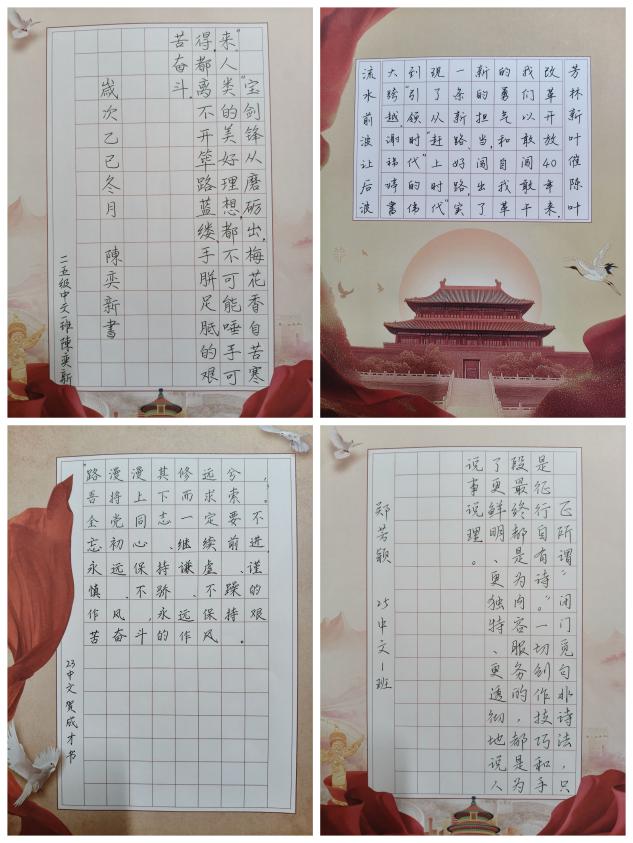 “宝剑锋从磨砺出，梅花香自苦寒
来。”人类的美好理想，都不可能唾手可
得，都离不开筚路蓝缕、手胼足胝的艰
苦奋斗。
歲次乙巳冬月 陳奕新書
二五级中文一班陈奕新
芳林新叶催陈叶
改革开放40年来，
我们以敢闯敢干
的勇气和自我革
新的担当，闯出了
一条新路、好路，实
现了从“赶上时代”
到“引领时代”的伟
大跨越。谢祎婷書
流水前波让后波
“路漫漫其修远兮，
吾将上下而求索。”
全党同志一定要不
忘初心、继续前进，
永远保持谦虚、谨
慎、不骄、不躁的
作风，永远保持艰
苦奋斗的作风。
23中文贺成才书
正所谓“闭门觅句非诗法，只
是征行自有诗”。一切创作技巧和手
段最终都是为内容服务的，都是为
了更鲜明、更独特、更透彻地说人
说事说理。
郑芳颖 25中文1班